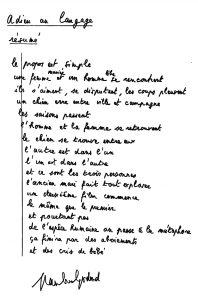 Adieu au langage
résumé
le propos est simple
une femme mariée et un homme libre se rencontrent
ils s'aiment, se disputent, les coups pleuvent
un chien erre entre ville et campagne
les saisons passent
l'homme et la femme se retrouvent
le chien se trouve entre eux
l'autre est dans l'un
l'un est dans l'autre
et ce sont les trois personnes
l'ancien mari fait tout exploser
un deuxième film commence
le même que le premier
et pourtant pas
de l'espèce humaine on passe à la métaphore
ça finira par des aboiements
et des cris de bébé